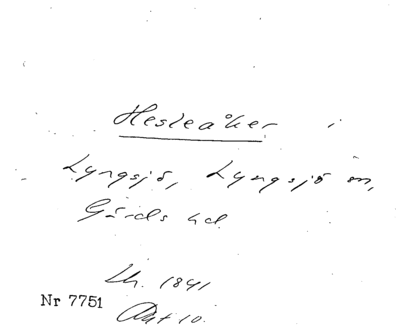 Hesleåker i
Lyngsjö, Lyngsjö sn,
Gärds hd.
Lh. 1841
Nr 7751
Akt 10.